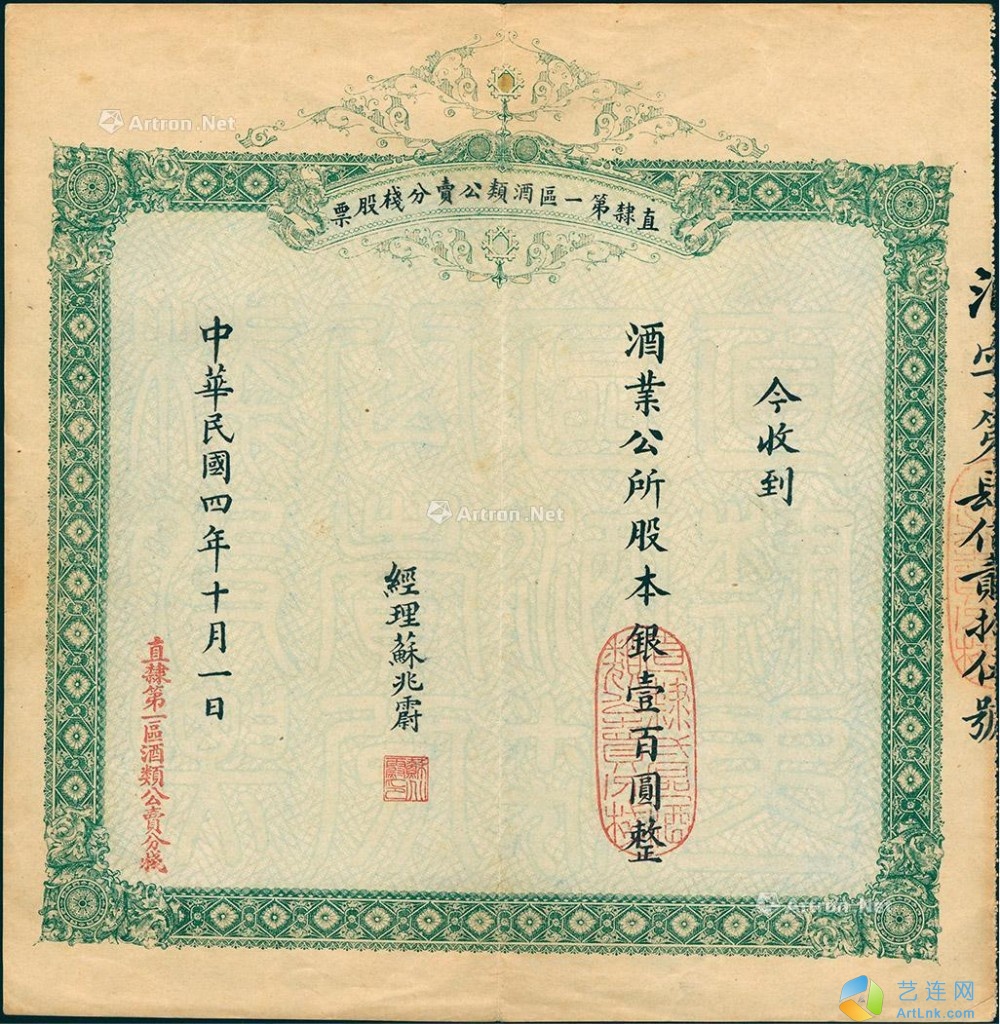 直隸第一區酒類公賣分棧股票
酒字第肆佰貳拾伍號
今收到
酒業公所股本銀壹百圓整
經理蘇兆霨
中華民國四年十月一日
直隸第一區酒類公賣分棧
Artron.Net
Artron.Net
Artron.Net
艺连网
ArtLnk.com